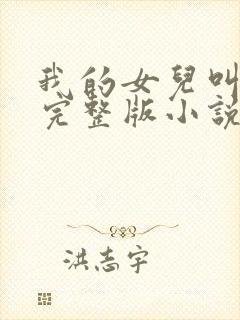 我的女兒叫
完整版小說
洪志宇